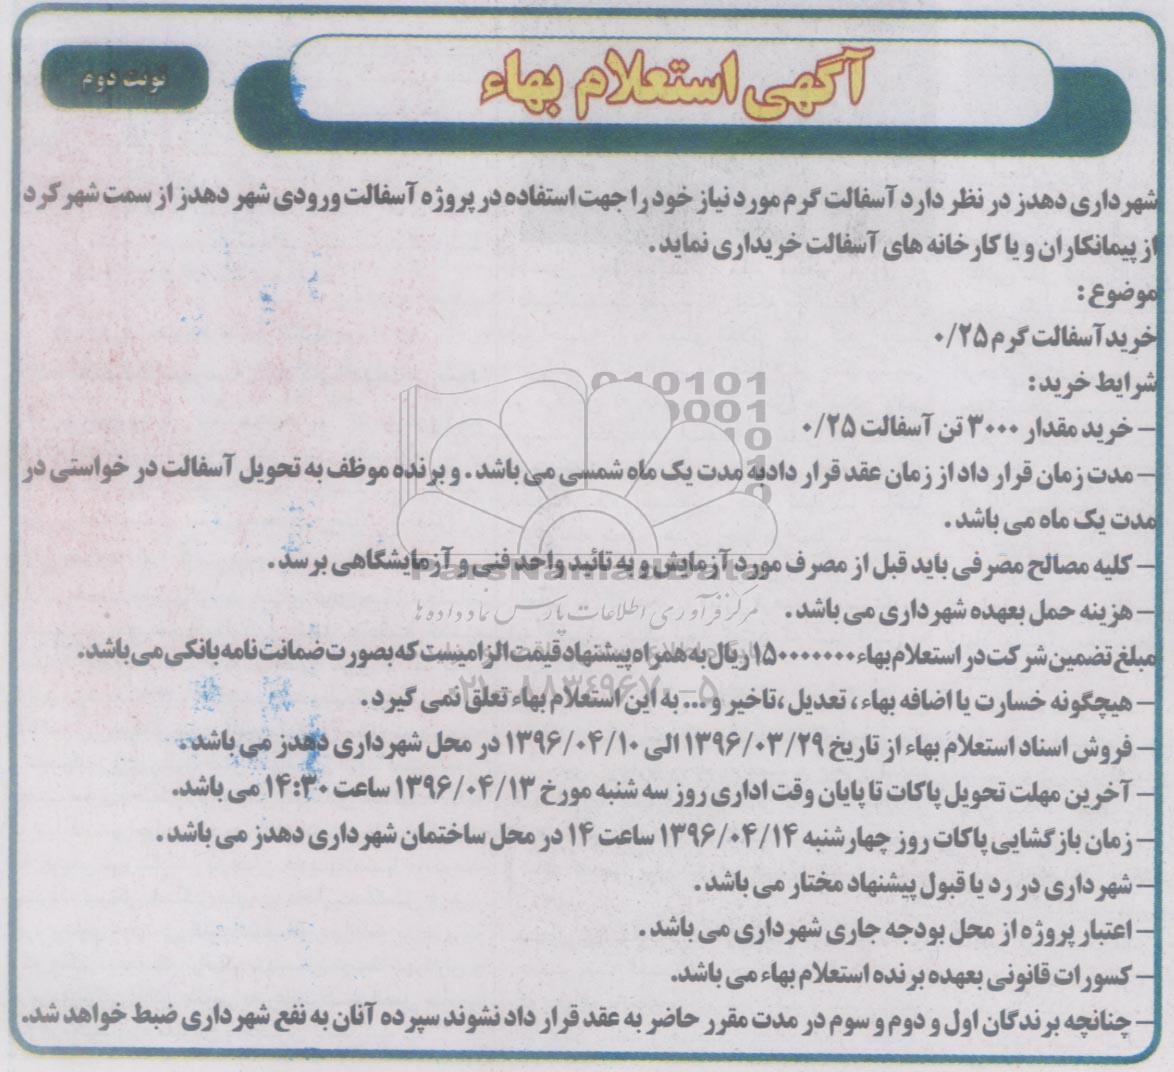 آگهی استعلام بهاء
نوبت دوم
شهرداری دهدز در نظر دارد آسفالت گرم مورد نیاز خود را جهت استفاده در پروژه آسفالت ورودی شهر دهدز از سمت شهرکرد
از پیمانکاران و یا کارخانه های آسفالت خریداری نماید .
موضوع :
خرید آسفالت گرم ۰/۲۵
شرایط خرید :
– خرید مقدار ۳۰۰۰ تن آسفالت ۰/۲۵
– مدت زمان قرار داد از زمان عقد قرار دادبه مدت یک ماه شمسی می باشد . و برنده موظف به تحویل آسفالت در خواستی در
مدت یک ماه می باشد .
– کلیه مصالح مصرفی باید قبل از مصرف مورد آزمایش و به تائید واحد فنی و آزمایشگاهی برسد .
– هزینه حمل بعهده شهرداری می باشد .
مبلغ تضمین شرکت در استعلام بهاء ۱۵۰۰۰۰۰۰۰ ریال به همراه پیشنهاد قیمت الزامیبیت که بصورت ضمانت نامه بانکی می باشد.
– هیچگونه خسارت یا اضافه بهاء ، تعدیل ،تاخیر و ... به این استعلام بهاء تعلق نمی گیرد .
– فروش اسناد استعلام بهاء از تاریخ ۱۳۹۶/۰۳/۲۹ الی ۱۳۹۶/۰۴/۱۰ در محل شهرداری دهدز می باشد .
– آخرین مهلت تحویل پاکات تا پایان وقت اداری روز سه شنبه مورخ ۱۳۹۶/۰۴/۱۳ ساعت ۱۴:۳۰ می باشد.
– زمان بازگشایی پاکات روز چهارشنبه ۱۳۹۶/۰۴/۱۴ ساعت ۱۴ در محل ساختمان شهرداری دهدز می باشد .
– شهرداری در رد یا قبول پیشنهاد مختار می باشد .
– اعتبار پروژه از محل بودجه جاری شهرداری می باشد .
– کسورات قانونی بعهده برنده استعلام بهاء می باشد.
– چنانچه برندگان اول و دوم و سوم در مدت مقرر حاضر به عقد قرار داد نشوند سپرده آنان به نفع شهرداری ضبط خواهد شد.
ParsNamadData
مرکز فرآوری اطلاعات پارس نماد داده ها
۰۲۱-۸۸۳۴۹۶۷۰-۵